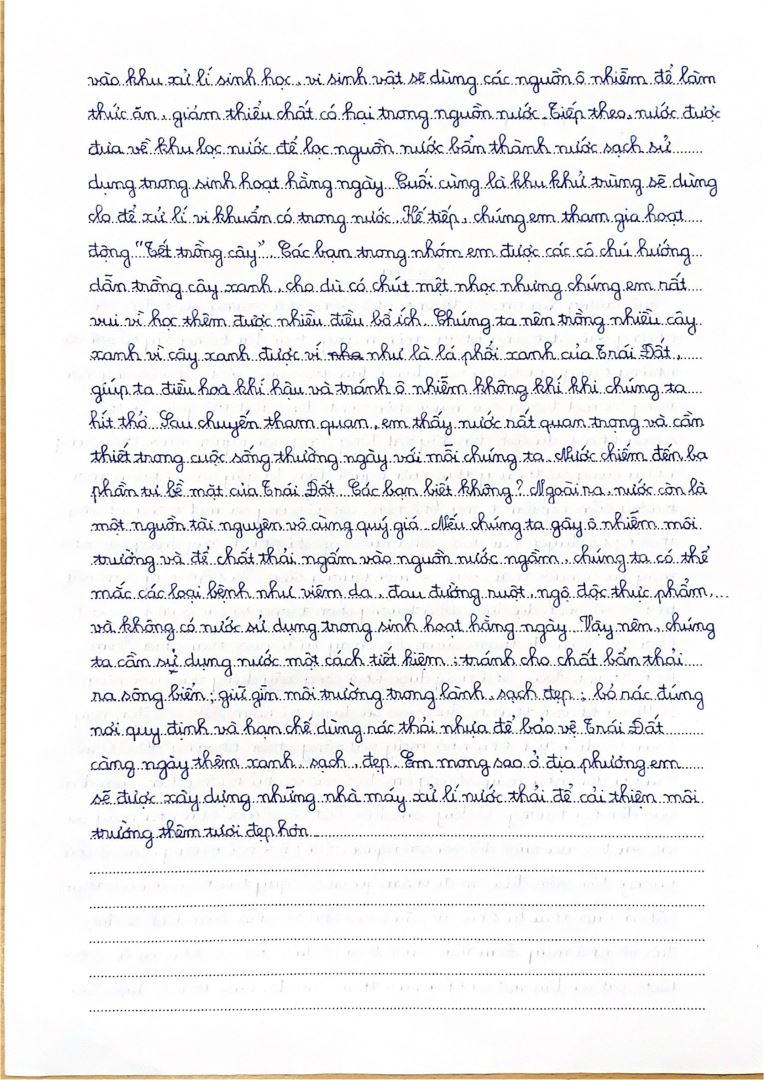 vào khu xử lí sinh học, vi sinh vật sẽ dùng các nguồn ô nhiễm để làm
thức ăn, giảm thiểu chất có hại trong nguồn nước. Tiếp theo, nước được
đưa về khu lọc nước để lọc nguồn nước bẩn thành nước sạch sử
dụng trong sinh hoạt hằng ngày. Cuối cùng là khu khử trùng sẽ dùng
clo để xử lí vi khuẩn có trong nước. Kế tiếp, chúng em tham gia hoạt
động "Tết trồng cây". Các bạn trong nhóm em được các cô chú hướng
dẫn trồng cây xanh, cho dù có chút mệt nhọc nhưng chúng em rất
vui vì học thêm được nhiều điều bổ ích. Chúng ta nên trồng nhiều cây
xanh vì cây xanh được ví như là lá phổi xanh của Trái Đất,
giúp ta điều hoà khí hậu và tránh ô nhiễm không khí khi chúng ta
hít thở. Sau chuyến tham quan, em thấy nước rất quan trọng và cần
thiết trong cuộc sống thường ngày với mỗi chúng ta. Nước chiếm đến ba
phần tư bề mặt của Trái Đất. Các bạn biết không? Ngoài ra, nước còn là
một nguồn tài nguyên vô cùng quý giá. Nếu chúng ta gây ô nhiễm môi
trường và để chất thải ngấm vào nguồn nước ngầm, chúng ta có thể
mắc các loại bệnh như viêm da, đau đường ruột, ngộ độc thực phẩm,...
và không có nước sử dụng trong sinh hoạt hằng ngày. Vậy nên, chúng
ta cần sử dụng nước một cách tiết kiệm; tránh cho chất bẩn thải
ra sông biển; giữ gìn môi trường trong lành, sạch đẹp; bỏ rác đúng
nơi quy định và hạn chế dùng rác thải nhựa để bảo vệ Trái Đất
càng ngày thêm xanh, sạch, đẹp. Em mong sao ở địa phương em
sẽ được xây dựng những nhà máy xử lí nước thải để cải thiện môi
trường thêm tươi đẹp hơn.